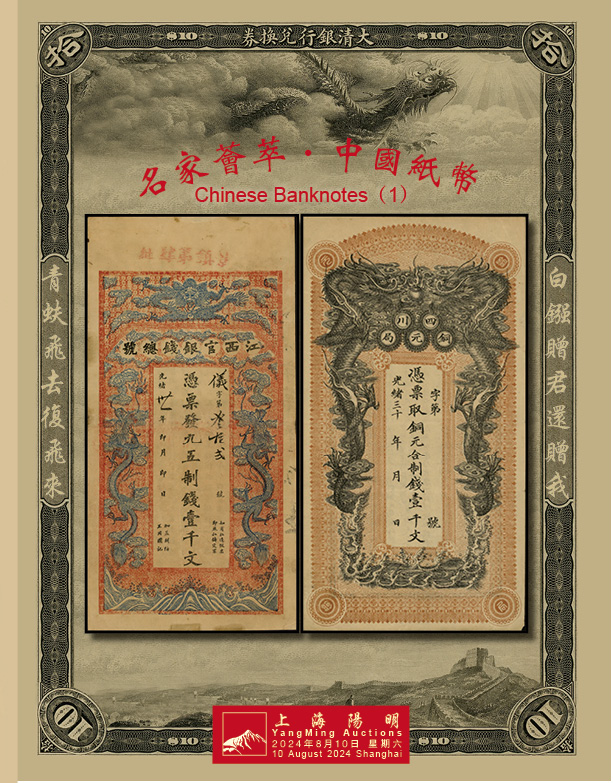 拾
$10
券換兌行銀清大
$10
拾
名家薈萃·中國紙幣
Chinese Banknotes（1）
青蚨飛去復飛來
白鏹贈君還贈我
號總錢銀官西江
儀字第叁拾弍號
憑票發九五制錢壹千文
光緒卅一年卯月卯日
四川
銅元局
字第 號
憑票取銅元合制錢壹千文
光緒三十年 月 日
10
$10
上海陽明
YangMing Auctions
2024年8月10日 星期六
10 August 2024 Shanghai
$10
10